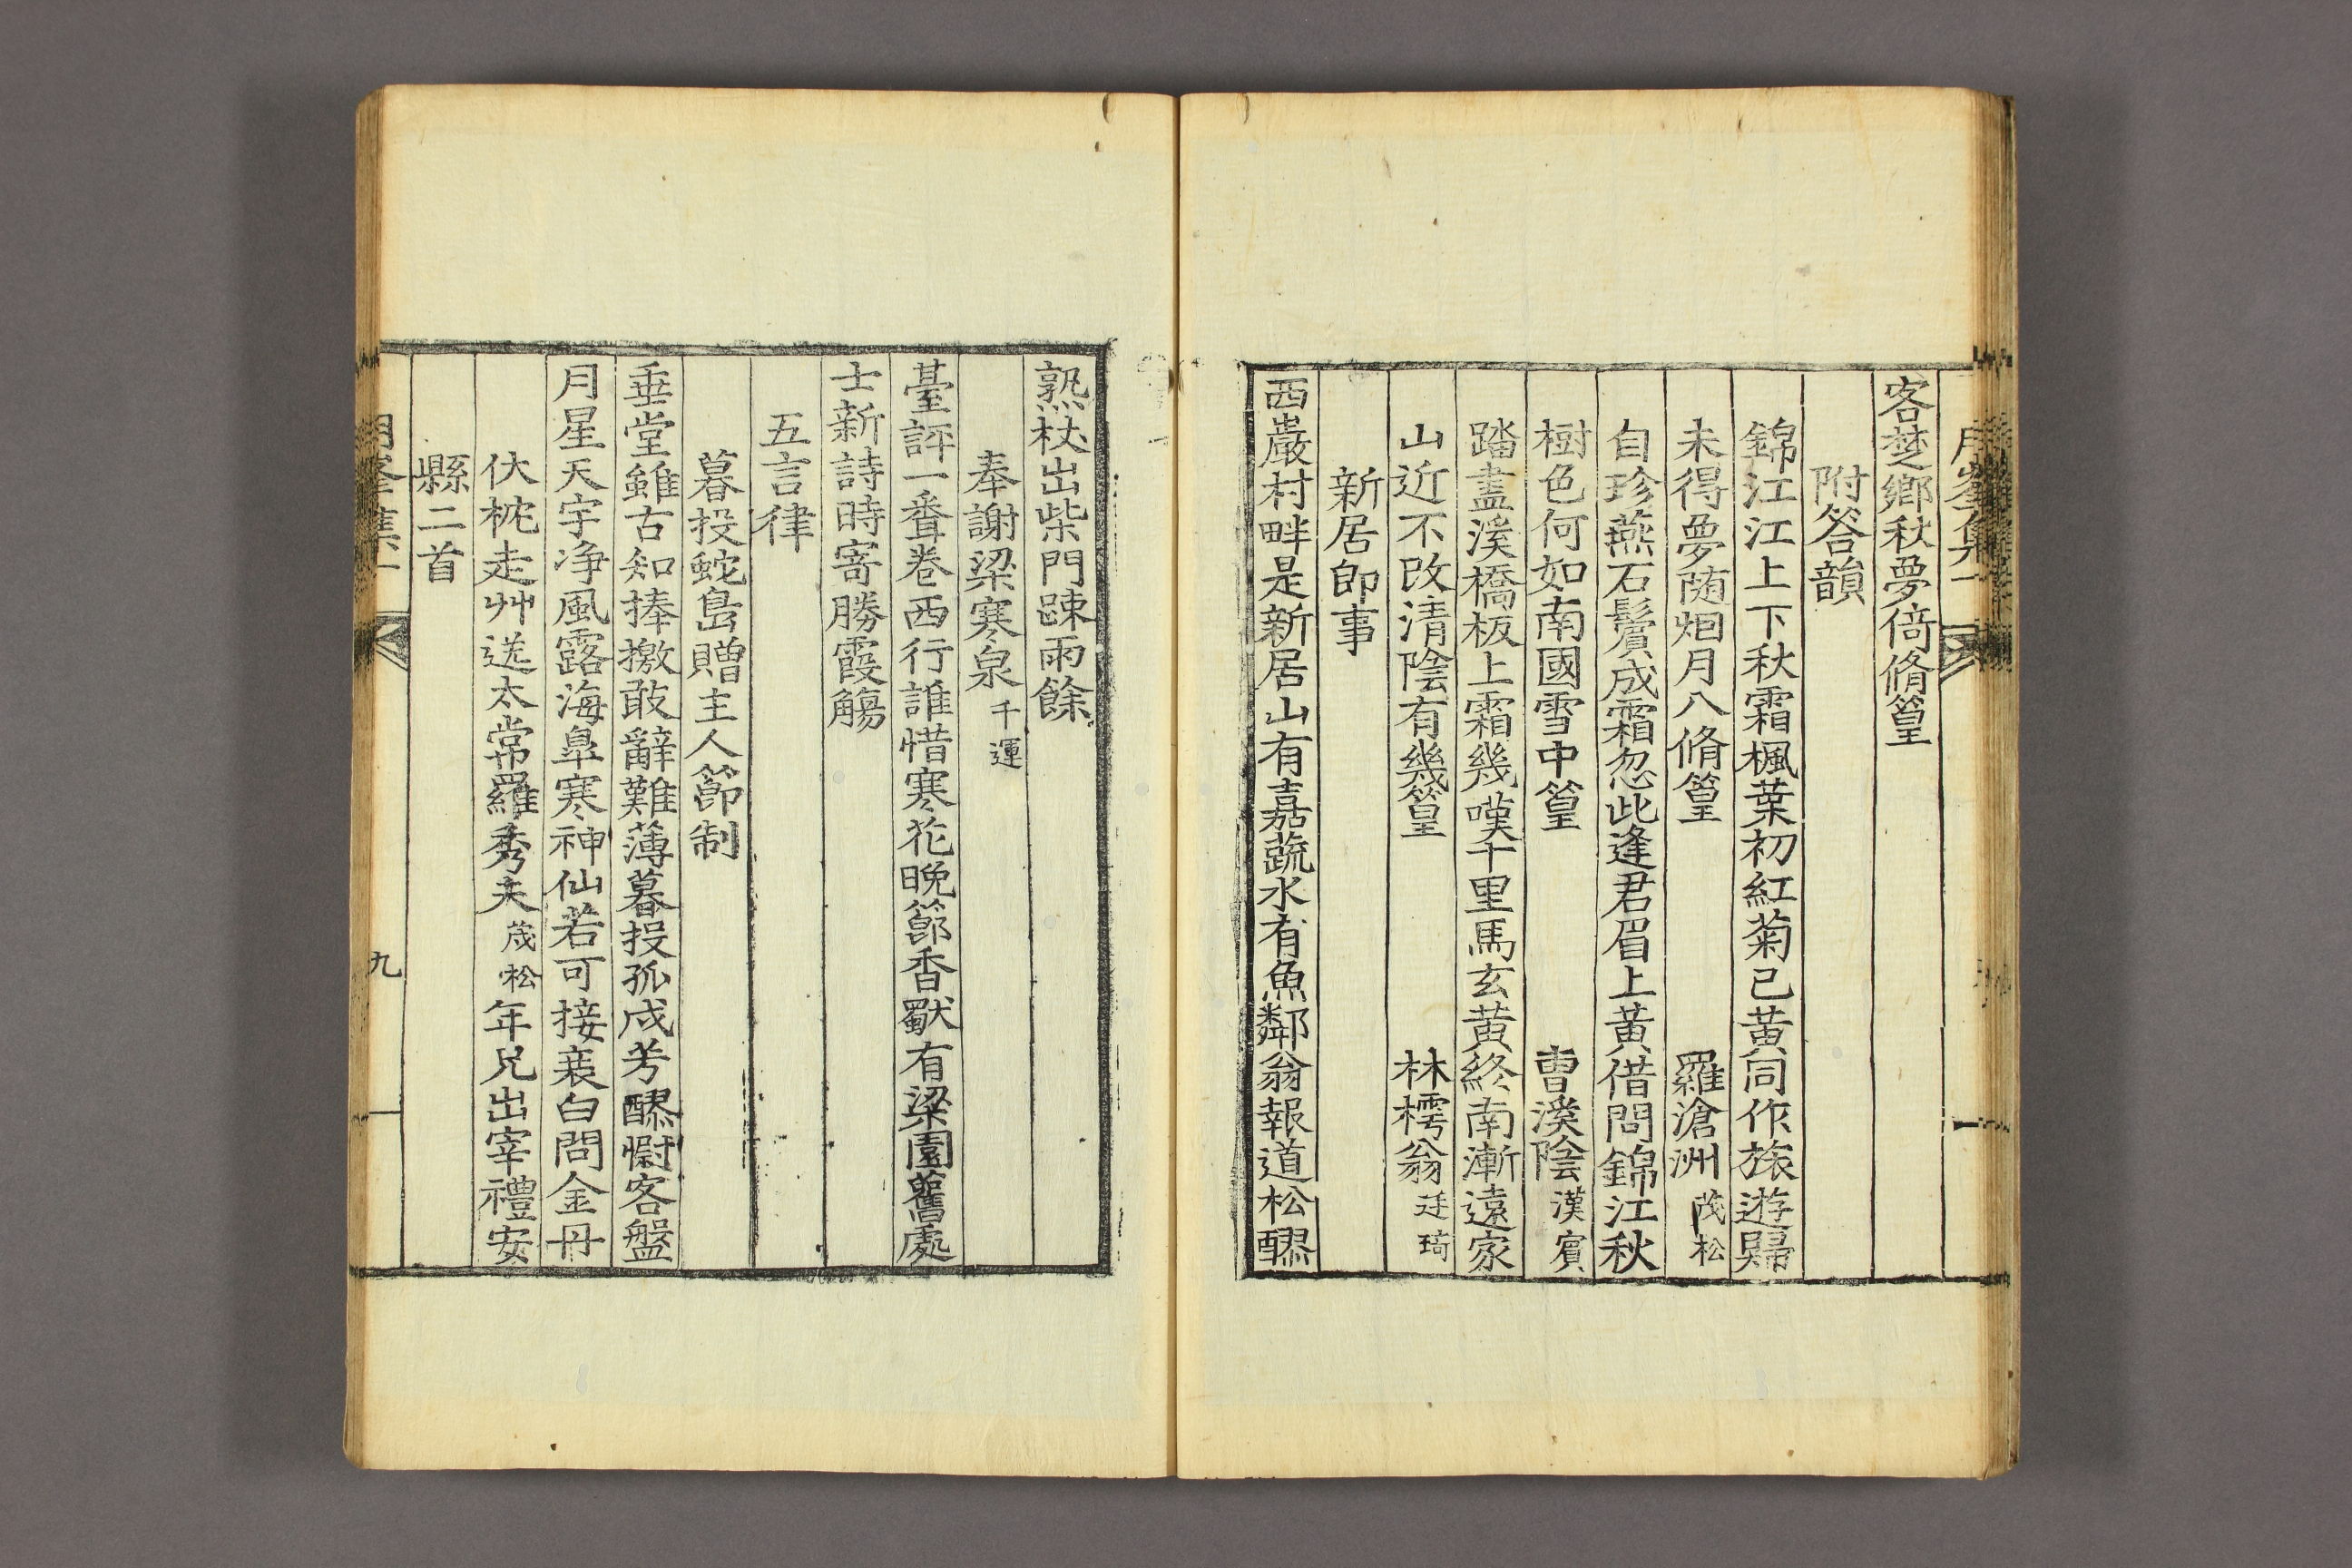 月峯集一
客楚鄕秋夢倚脩篁
附答韻
錦江江上下秋霜楓葉初紅菊已黃同作旅遊歸
未得夢随烟月八脩篁 羅滄洲茂松
自珍燕石鬢成霜忽此逢君眉上黃借問錦江秋
樹色何如南國雪中篁 曺溪陰漢賓
踏盡溪橋板上霜幾嘆千里馬玄黃終南漸遠家
山近不改清陰有幾篁 林樗翁廷琦
新居卽事
西巖村畔是新居山有嘉蔬水有魚鄰翁報道松醪
熟杖出柴門踈雨餘
奉謝梁寒泉千運
臺評一番卷西行誰惜寒花晚節香獸有梁園舊處
士新詩時寄勝霞觴
五言律
暮投蛇島贈主人節制
垂堂雖古知捧檄敢辭難薄暮投孤戍芳醪慰客盤
月星天宇净風露海皐寒神仙若可接衰白問金丹
伏枕走艸送太常羅秀夫茂松年兄出宰禮安
縣二首
月峯集一
九